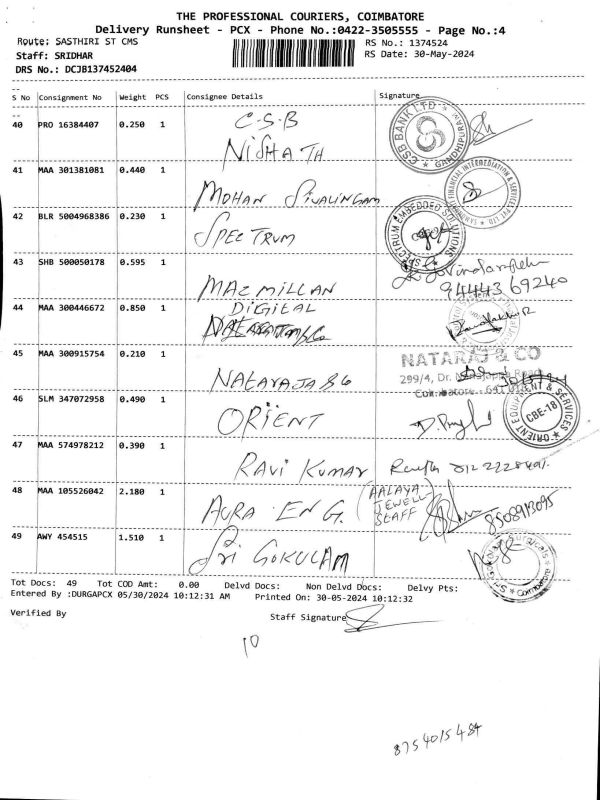 THE PROFESSIONAL COURIERS, COIMBATORE
Delivery Runsheet - PCX - Phone No.:0422-3505555 - Page No.:4
Route: SASTHIRI ST CMS
RS No.: 1374524
Staff: SRIDHAR
RS Date: 30-May-2024
DRS No.: DCJB137452404
S No Consignment No Weight PCS Consignee Details Signature
40 PRO 16384407 0.250 1 C-S-B
NISHA TH
CSB BANK LTD. GANDHIPURAM
41 MAA 301381081 0.440 1
MOHAN SIVALINGAM
FINANCIAL INTERMEDIATION & SERVICES PVT. LTD
42 BLR 5004968386 0.230 1
SPECTRUM
SPECTRUM EMBEDDED SOLUTIONS
43 SHB 500050178 0.595 1
MACMILLAN
94443 69240
44 MAA 300446672 0.850 1 DIGITAL
45 MAA 300915754 0.210 1
NATARAJ & CO
299/4, Dr. Road
NATARAJA & CO
46 SLM 347072958 0.490 1
ORIENT
ORIENT EQUIPMENT & SERVICES CBE-18
47 MAA 574978212 0.390 1
RAVI KUMAR
48 MAA 105526042 2.180 1
AURA ENG.
(AALAYA JEWELL- STAFF
8508913095
49 AWY 454515 1.510 1
SRI GOKULAM
Tot Docs: 49 Tot COD Amt: 0.00 Delvd Docs: Non Delvd Docs: Delvy Pts:
Entered By :DURGAPCX 05/30/2024 10:12:31 AM Printed On: 30-05-2024 10:12:32
Verified By
Staff Signature
10
8754015484